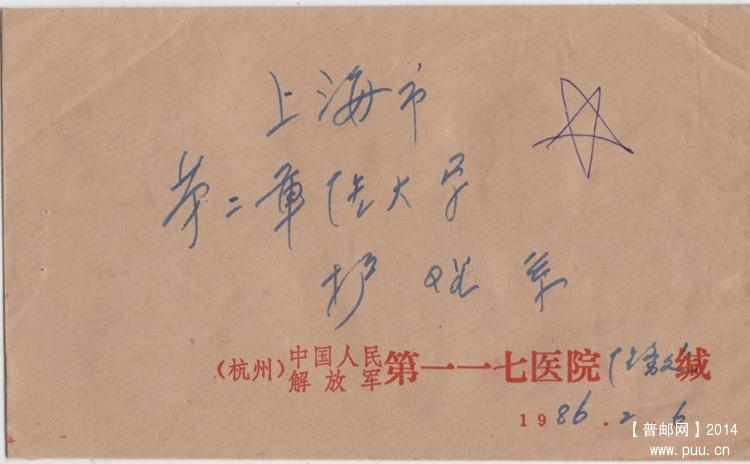 上海市
第二军医大学
护理系
(杭州) 中国人民解放军 第一一七医院 医务 缄
1986.2.6
【普邮网】2014
www.puu.cn